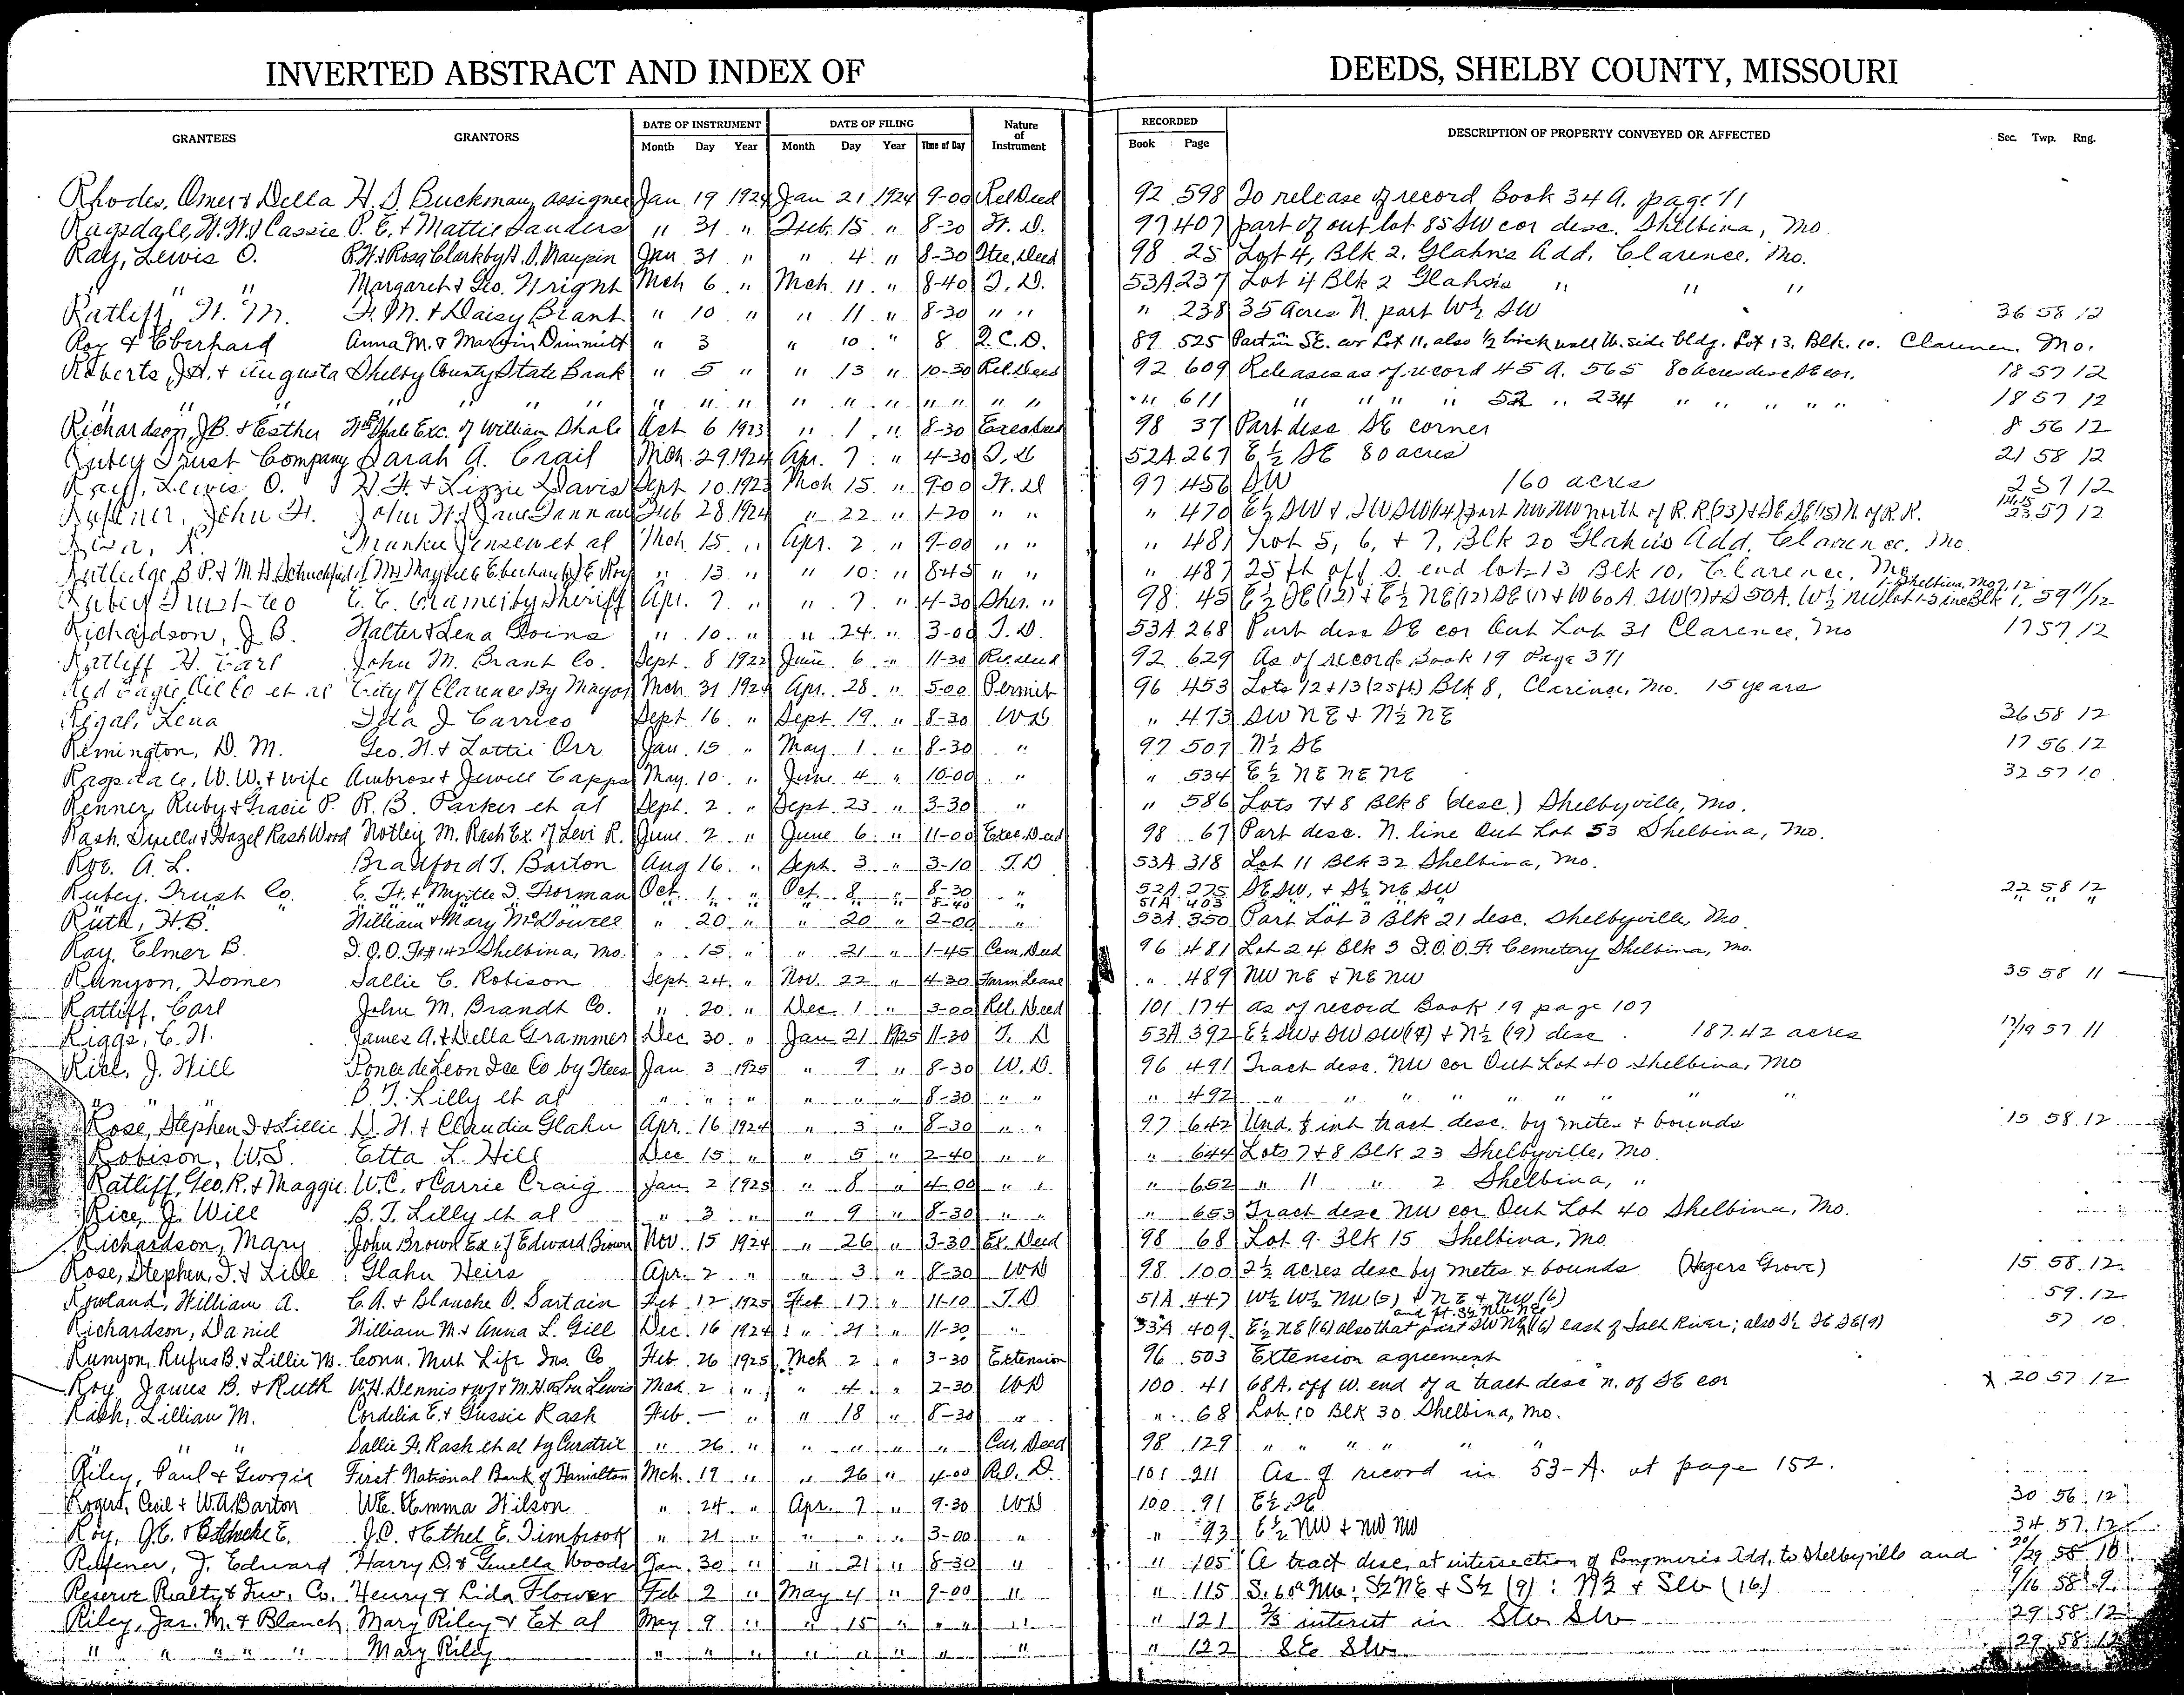 INVERTED ABSTRACT AND INDEX OF DEEDS, SHELBY COUNTY, MISSOURI
GRANTEES GRANTORS DATE OF INSTRUMENT DATE OF FILING Nature of Instrument RECORDED DESCRIPTION OF PROPERTY CONVEYED OR AFFECTED Sec. Twp. Rng.
Month Day Year Month Day Year Time of Day Book Page
Rhodes, Omer & Della H. S. Buckman, assignee Jan 19 1924 Jan 21 1924 9-00 Rel Deed 92 598 To release of record Book 34 A. page 71
Ragsdale, W. W. & Cassie P. E. & Mattie Sanders " 31 " Feb. 15 " 8-30 W. D. 97 407 part of out lot 85 SW cor desc. Shelbina, Mo.
Ray, Lewis O. Jan 31 " " 4 " 8-30 Stee, Deed 98 25 Lot 4, Blk 2. Glahn's Add. Clarence, Mo.
" " Margaret & Geo. Wright Mch 6 " Mch. 11 " 8-40 T. D. 53A 237 Lot 4 Blk 2 Glahn's " " "
Ratliff, W. M. F. M. & Daisy Brant " 10 " " 11 " 8-30 " " " 238 35 acres N. part W½ SW 36 58 12
Roy & Eberhard Anna M. & Marvin Dimmitt " 3 " 10 " 8 Q. C. D. 89 525 Part in SE. cor Lot 11, also ½ brick wall W. side bldg. Lot 13, Blk. 10. Clarence, Mo.
Roberts, J. A. & Augusta Shelby County State Bank " 5 " " 13 " 10-30 Rel. Deed 92 609 Release as of record 45 A. 565 80 acres desc SE cor. 18 57 12
" " " " " " " " " " " " " " " " 611 " " " " 52 " 234 " " " " " 18 57 12
Richardson, J. B. & Esther W B Shale Exc. of William Shale Oct 6 1923 " 1 " 8-30 Exec Deed 98 37 Part desc SE corner 8 56 12
Rubey Trust Company Sarah A. Crail Mch. 29 1924 Apr. 7 " 4-30 T. D 52A 267 E½ SE 80 acres 21 58 12
Lewis O. & Lizzie Davis Sept 10 1923 Mch 15 " 9-00 W. D 97 456 SW 160 acres 2 57 12
John H. Feb 28 1924 " 22 " 1-20 " " " 470 E½ SW & SW SW (14) part NW NW north of R. R. (23) & SE SE (15) N. of R.R. 14.15 23 57 12
Jensen et al Mch. 15 " Apr. 2 " 9-00 " " " 481 Lot 5, 6, & 7, Blk 20 Glahn's Add. Clarence, Mo
Rutledge, B. P. & M. H. " 13 " " 10 " 8-45 " " " 487 25 ft off S. end lot 13 Blk 10, Clarence, Mo
Rubey Trust Co E. E. Cramer by Sheriff Apr. 7 " " 7 " 4-30 Sher. " 98 45 E½ SE (12) & E½ NE (12) SE (1) & W 60 A. SW (7) & S 50 A. W½ 59 11/12
Richardson, J. B. Walter & Lena Goins " 10 " " 24 " 3-00 T. D. 53A 268 Part desc SE cor Out Lot 31 Clarence, Mo 17 57 12
Ratliff H. Carl John M. Brant Co. Sept. 8 1922 June 6 " 11-30 Rel deed 92 629 As of record Book 19 Page 371
Red Eagle Oil Co et al City of Clarence By Mayor Mch 31 1924 Apr. 28 " 5-00 Permit 96 453 Lots 12 & 13 (25ft) Blk 8, Clarence, Mo. 15 years
Rigal, Lena Ida J Carrico Sept. 16 " Sept. 19 " 8-30 WD " 473 SW NE & N½ NE 36 58 12
Remington, D. M. Geo. H. & Lottie Orr Jan. 15 " May. 1 " 8-30 " 97 507 N½ SE 17 56 12
Ragsdale, W. W. & wife Ambrose & Jewell Capps May. 10 " June 4 " 10-00 " " 534 E½ NE NE NE 32 57 10
Renner, Ruby & Gracie P. R. B. Parker et al Sept. 2 " Sept. 23 " 3-30 " " 586 Lots 7 & 8 Blk 8 (desc.) Shelbyville, Mo.
Rash, Luella & Hazel Rash Wood Notley M. Rash Ex. of Levi R. June 2 " June 6 " 11-00 Exec. Deed 98 67 Part desc. N. line Out Lot 53 Shelbina, Mo.
Roe. A. L. Bradford T. Barton Aug 16 " Sept. 3 " 3-10 T. D 53A 318 Lot 11 Blk 32 Shelbina, Mo.
Rubey. Trust Co. E. H. & Myrtle D. Forman Oct. 1 " Oct. 8 " 8-30 " 52A 275 SE SW. & S½ NE SW 22 58 12
" " " " " " 8-40 " 51A 403 " " " " " "
Ruth, H.B. William & Mary McDowell " 20 " " 20 " 2-00 " 53A 350 Part Lot 3 Blk 21 desc. Shelbyville, Mo.
Ray, Elmer B. I. O. O. F. #142 Shelbina, Mo. " 15 " " 21 " 1-45 Cem. Deed 96 481 Lot 24 Blk 3 I. O. O. F. Cemetery Shelbina, Mo.
Runyon, Homer Sallie C. Robison Sept. 24 " Nov. 22 " 4-30 Farm Lease " 489 NW NE & NE NW 35 58 11
Ratliff, Carl John M. Brandt Co. " 20 " Dec. 1 " 3-00 Rel. Deed 101 174 as of record Book 19 page 107
Riggs, C. H. James A. & Della Grammer Dec. 30 " Jan. 21 1925 11-30 T. D 53A 392 E½ SW & SW SW (7) & N½ (9) desc. 187.42 acres 17/19 57 11
Rice, J. Will Ponce de Leon Ice Co by Stees Jan. 3 1925 " 9 " 8-30 W. D. 96 491 Tract desc. NW cor Out Lot 40 Shelbina, Mo
" " " B. T. Lilly et al " " " " " " 8-30 " " " 492 " " " " " " " "
Rose, Stephen I & Lillie D. H. & Claudia Glahn Apr. 16 1924 " 3 " 8-30 " " 97 642 Und. ⅛ int tract desc. by metes & bounds 15 58 12
Robison, W.S. Etta L. Hill Dec 15 " " 5 " 2-40 " " " 644 Lots 7 & 8 Blk 23 Shelbyville, Mo.
Ratliff, Geo. R. & Maggie W.C. & Carrie Craig Jan 2 1925 " 8 " 4-00 " " " 652 " 11 " 2 Shelbina, "
Rice, J. Will B. T. Lilly et al " 3 " " 9 " 8-30 " " " 653 Tract desc NW cor Out Lot 40 Shelbina, Mo.
Richardson, Mary John Brown Ex of Edward Brown Nov. 15 1924 " 26 " 3-30 Ex. Deed 98 68 Lot 9 Blk 15 Shelbina, Mo
Rose, Stephen, I. & Lillie Glahn Heirs Apr. 2 " " 3 " 8-30 WD 98 100 2½ acres desc by metes & bounds (Hagers Grove) 15 58 12
Rowland, William A. C. A. & Blanche O. Sartain Feb 12 1925 Feb 17 " 11-10 T. D 51A 447 W½ W½ NW (5) & NE & NW (6) 59 12
Richardson, Daniel William M. & Anna L. Gill Dec. 16 1924 " 21 " 11-30 " 53A 409 E½ NE (16) also that part SW NE (16) east of Salt River; also S½ SE SE (9) 57 10
Runyon, Rufus B. & Lillie M. Conn. Mut Life Ins. Co Feb 26 1925 Mch 2 " 3-30 Extension 96 503 Extension agreement
Roy James B. & Ruth W.H. Dennis & wf & M. H. & Lou Lewis Mch. 2 " " 4 " 2-30 WD 100 41 68 A. off W. end of a tract desc N. of SE cor X 20 57 12
Rash, Lillian M. Cordelia E. & Gussie Rash Feb. — " " 18 " 8-30 " " 68 Lot 10 Blk 30 Shelbina, Mo.
" " " Sallie F. Rash et al by Curatrix " 26 " " " " " Cur. Deed 98 129 " " " " " "
Riley, Paul & Georgia First National Bank of Hamilton Mch. 19 " " 26 " 4-00 Rel. D. 101 211 As of record in 53-A. at page 152.
Rogers, Cecil & W.A. Barton W.E. & Emma Wilson " 24 " Apr. 7 " 9-30 WD 100 91 E½ SE 30 56 12
Roy, J.E. & Blanche E. J.C. & Ethel E. Timbrook " 21 " " " " 3-00 " " 93 E½ NW & NW NW 34 57 12
J. Edward Harry D. & Luella Woods Jan. 30 " " 21 " 8-30 " " 105 A tract desc. at intersection of Longmire's Add. to Shelbyville and 20/29 58 10
Reserve Realty & Inv. Co. Henry & Lida Flower Feb 2 " May 4 " 9-00 " " 115 S. 60a NW: S½ NE & S½ (9) : N½ & SW (16) 9/16 58 9
Riley, Jas. M. & Blanch Mary Riley & Et al May 9 " " 15 " " " " " 121 ⅔ interest in SW SW 29 58 12
" " " " " Mary Riley " " " " " " " " " 122 SE SW 29 58 12